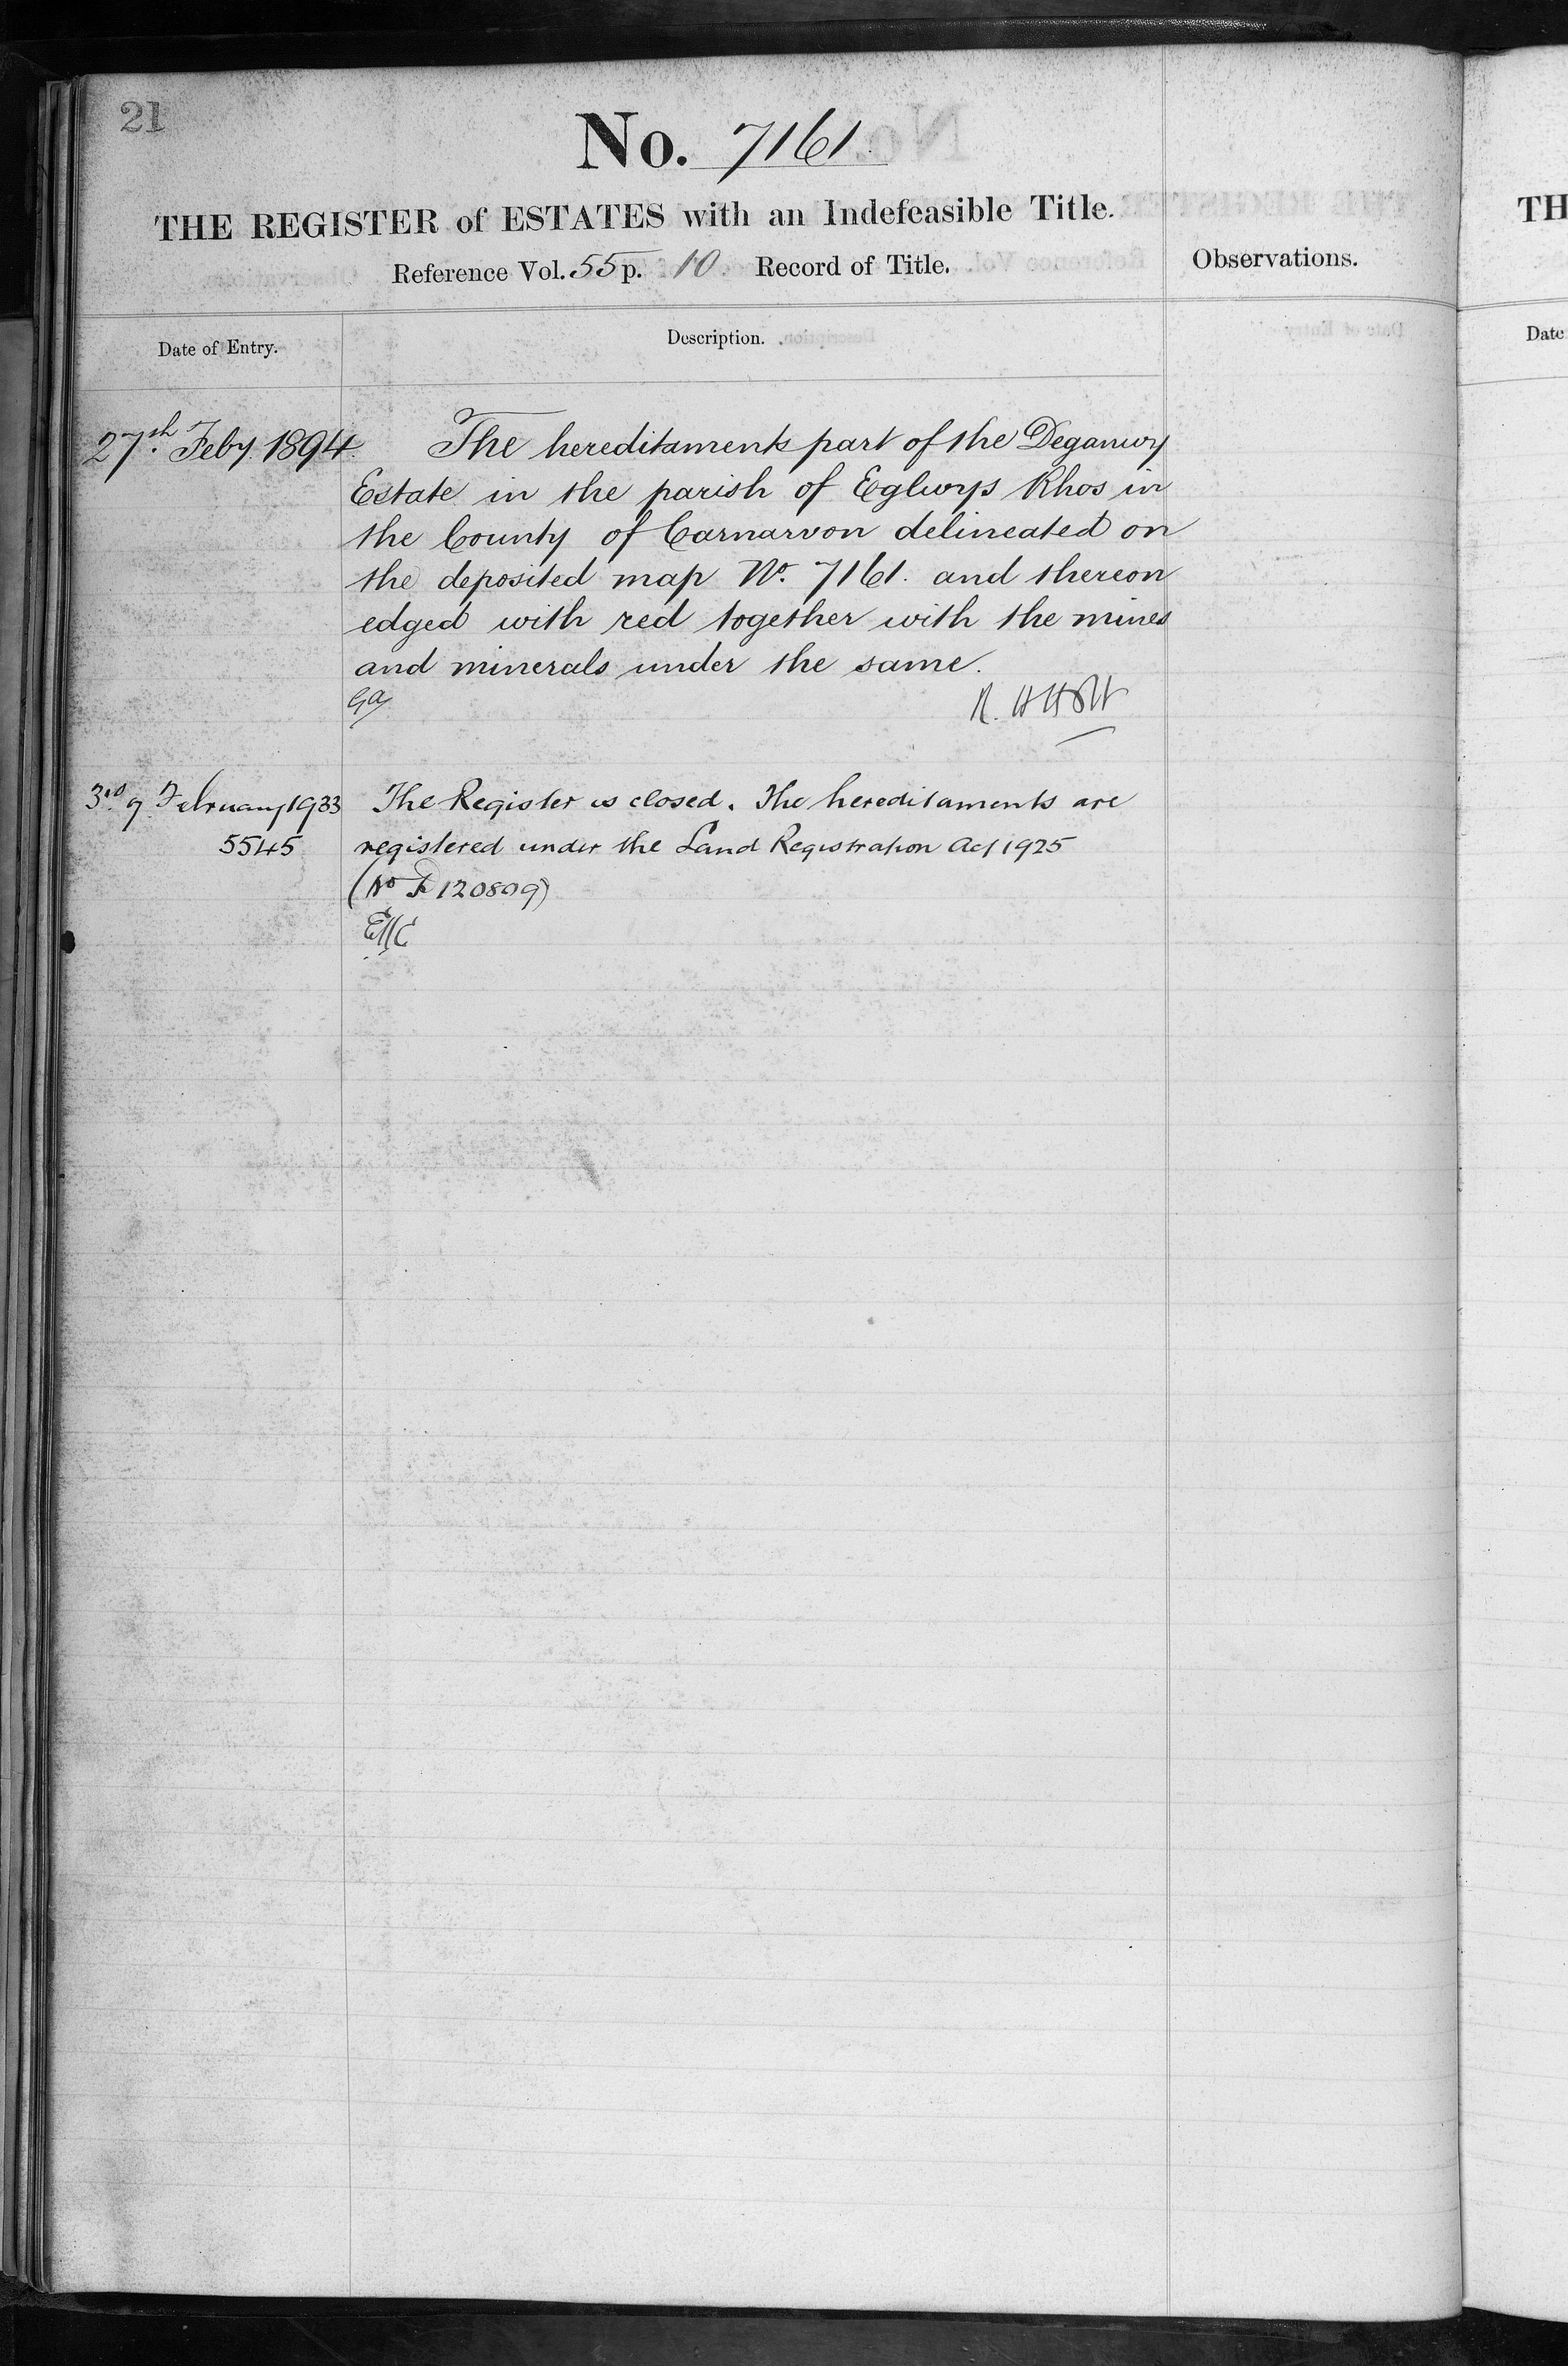 21
No. 7161.
THE REGISTER of ESTATES with an Indefeasible Title.
Reference Vol. 55 p. 10 Record of Title.
Observations.
Date of Entry.
Description.
27th Feby 1894.
The hereditaments part of the Deganwy
Estate in the parish of Eglwys Rhos in
the County of Carnarvon delineated on
the deposited map No. 7161. and thereon
edged with red together with the mines
and minerals under the same.
Ga
R. H Holt
3rd of February 1933
The Register is closed. The hereditaments are
5545
registered under the Land Registration Act 1925
120809)
TH
Date